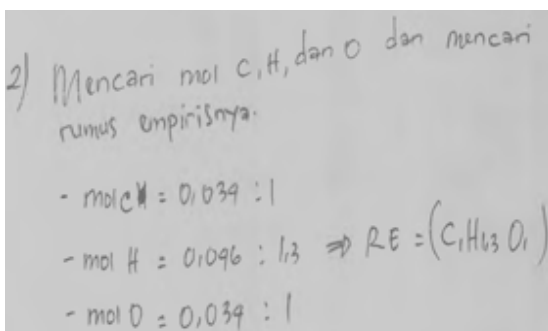 2) Mencari mol C, H, dan O dan mencari
rumus empirisnya.
- mol C = 0,034 : 1
- mol H = 0,046 : 1,3 ⇒ RE = (C₁H₁,₃O₁)
- mol O = 0,034 : 1